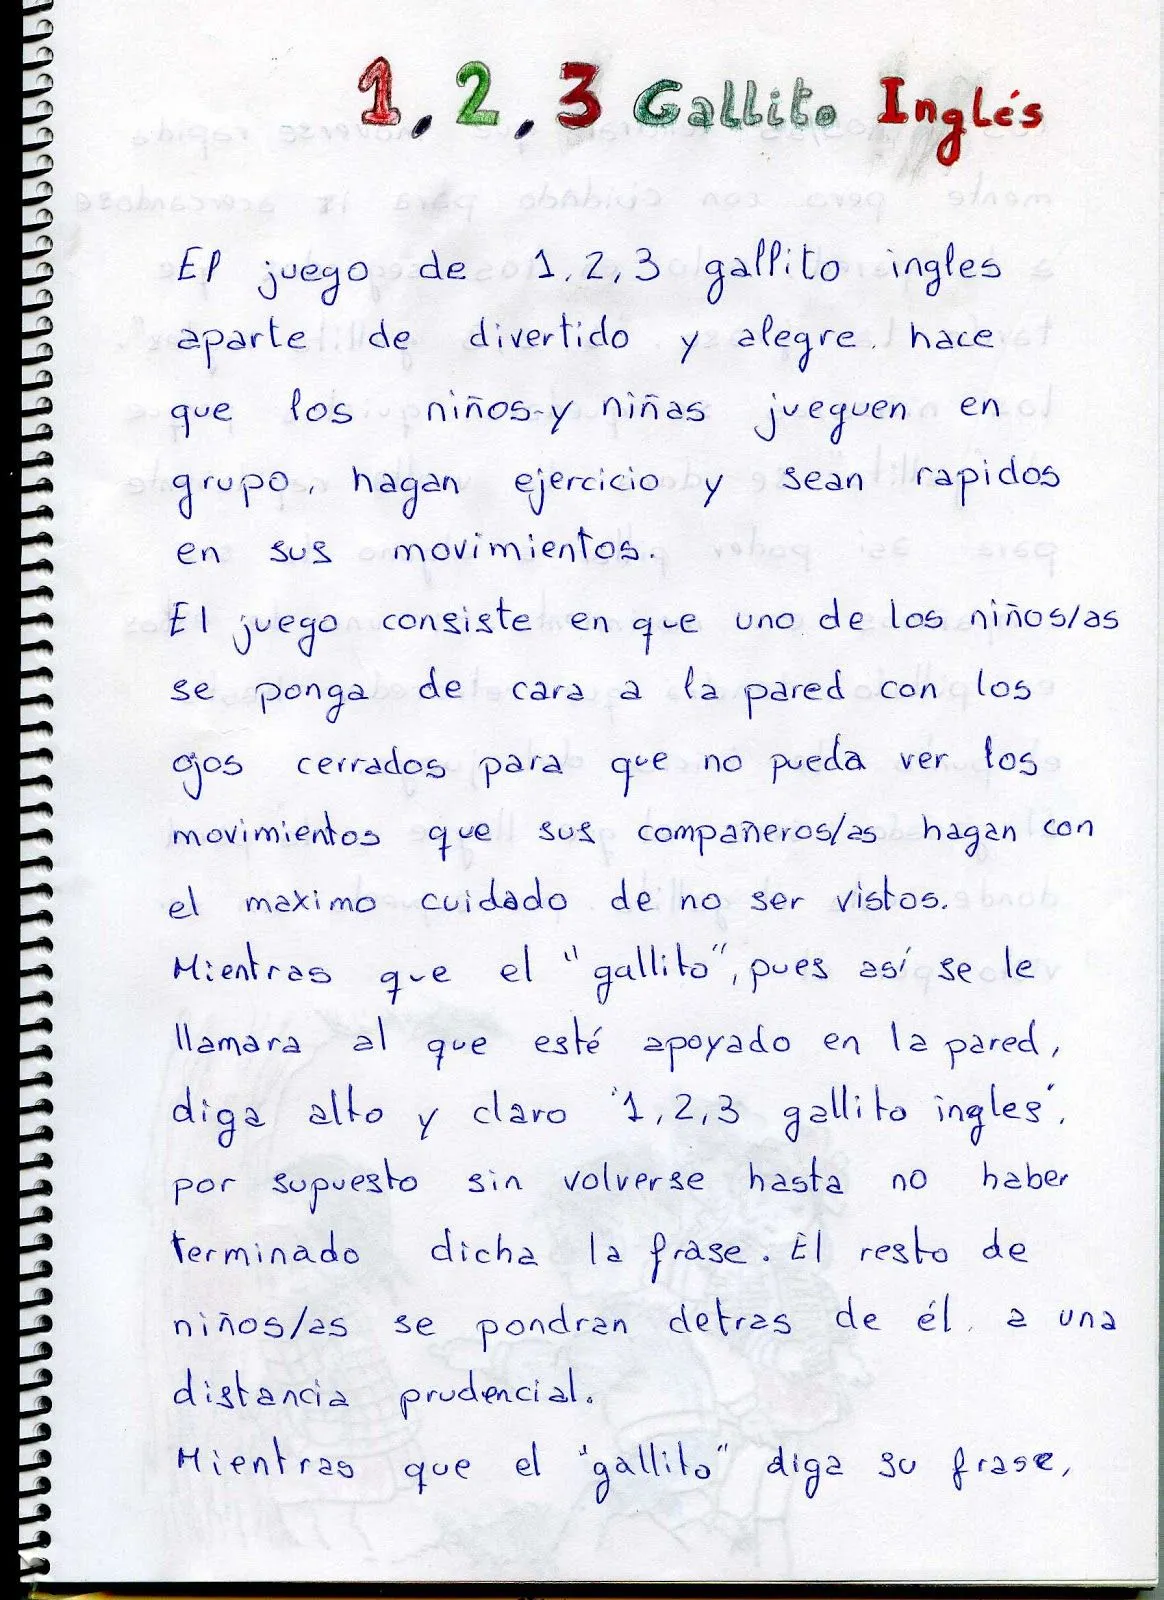 1, 2, 3 Gallito Inglés
El juego de 1, 2, 3 gallito ingles
aparte de divertido y alegre, hace
que los niños y niñas jueguen en
grupo, hagan ejercicio y sean rapidos
en sus movimientos.
El juego consiste en que uno de los niños/as
se ponga de cara a la pared con los
ojos cerrados para que no pueda ver los
movimientos que sus compañeros/as hagan con
el maximo cuidado de no ser vistos.
Mientras que el "gallito", pues así se le
llamara al que esté apoyado en la pared,
diga alto y claro "1, 2, 3 gallito ingles",
por supuesto sin volverse hasta no haber
terminado dicha la frase. El resto de
niños/as se pondran detras de él, a una
distancia prudencial.
Mientras que el "gallito" diga su frase,